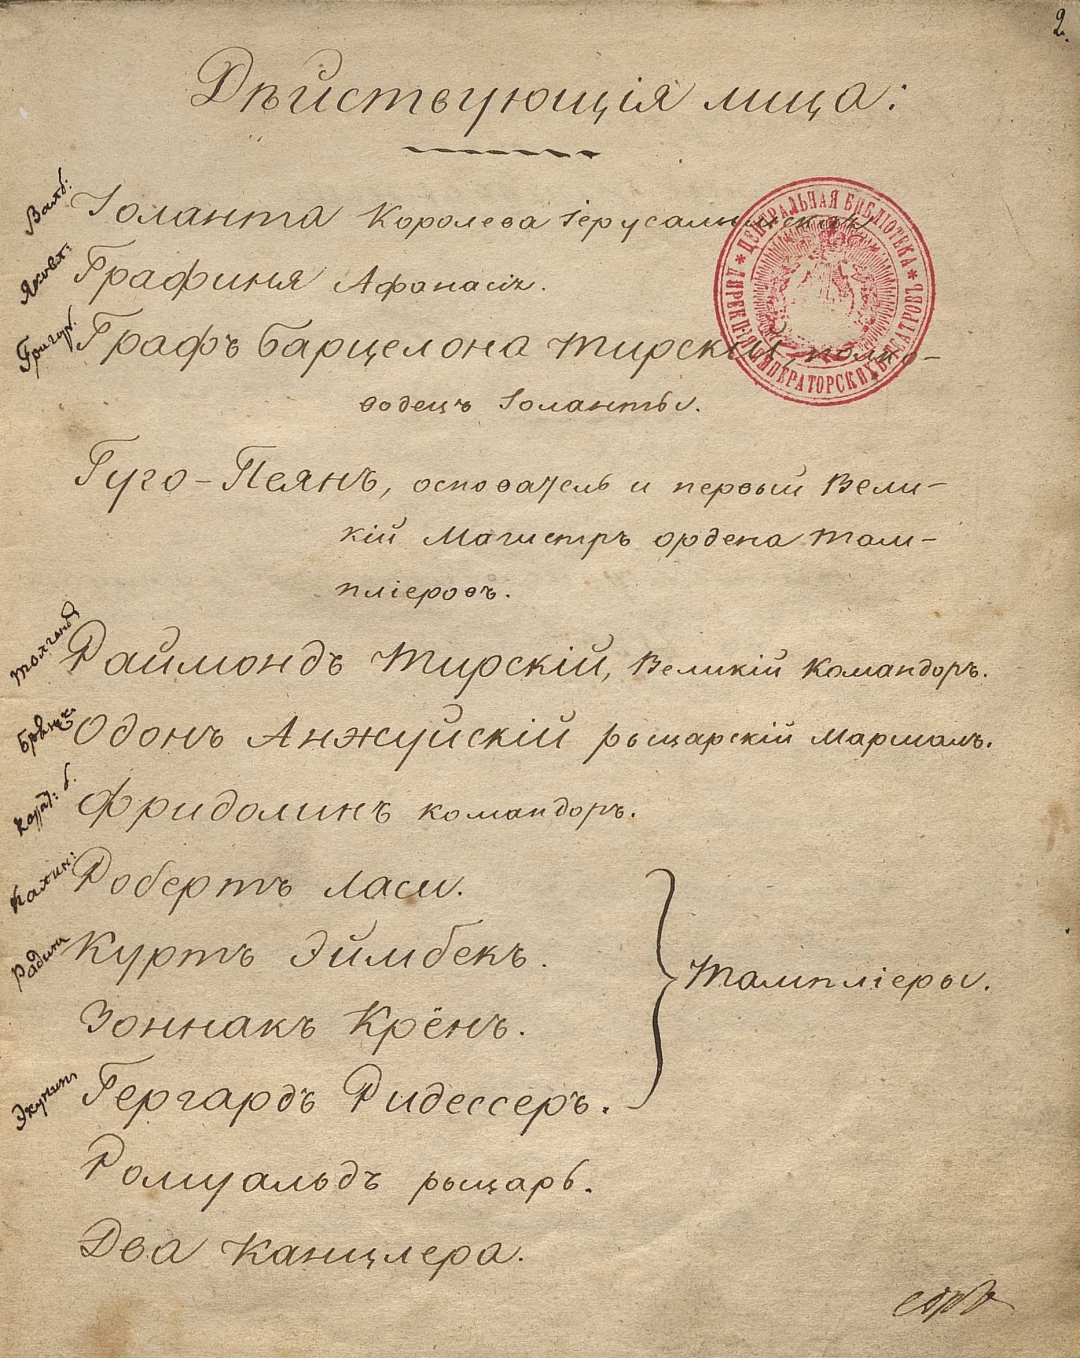 2.
Дѣйствующія лица:
Валб: Іоланта Королева Іерусалимская
Яковл: Графиня Афанасія.
Григор. Графъ Барцелона Тирскій, полко-
водецъ Іоланты.
Гуго-Пеянъ, основатель и первый Вели-
кій Магистръ ордена Там-
пліеровъ.
Раймондъ Тирскій, Великій Командоръ.
Одонъ Анжуйскій рыцарскій Маршалъ.
Фридолинъ командоръ.
Калин: Робертъ Ласи.
Куртъ Эймбекъ.
Тампліеры.
Зоннакъ Крёнъ.
Гергардъ Ридессеръ.
Ромуальдъ рыцарь.
Два Канцлера.
ЦЕНТРАЛЬНАЯ БИБЛІОТЕКА
ИМПЕРАТОРСКИХЪ ТЕАТРОВЪ